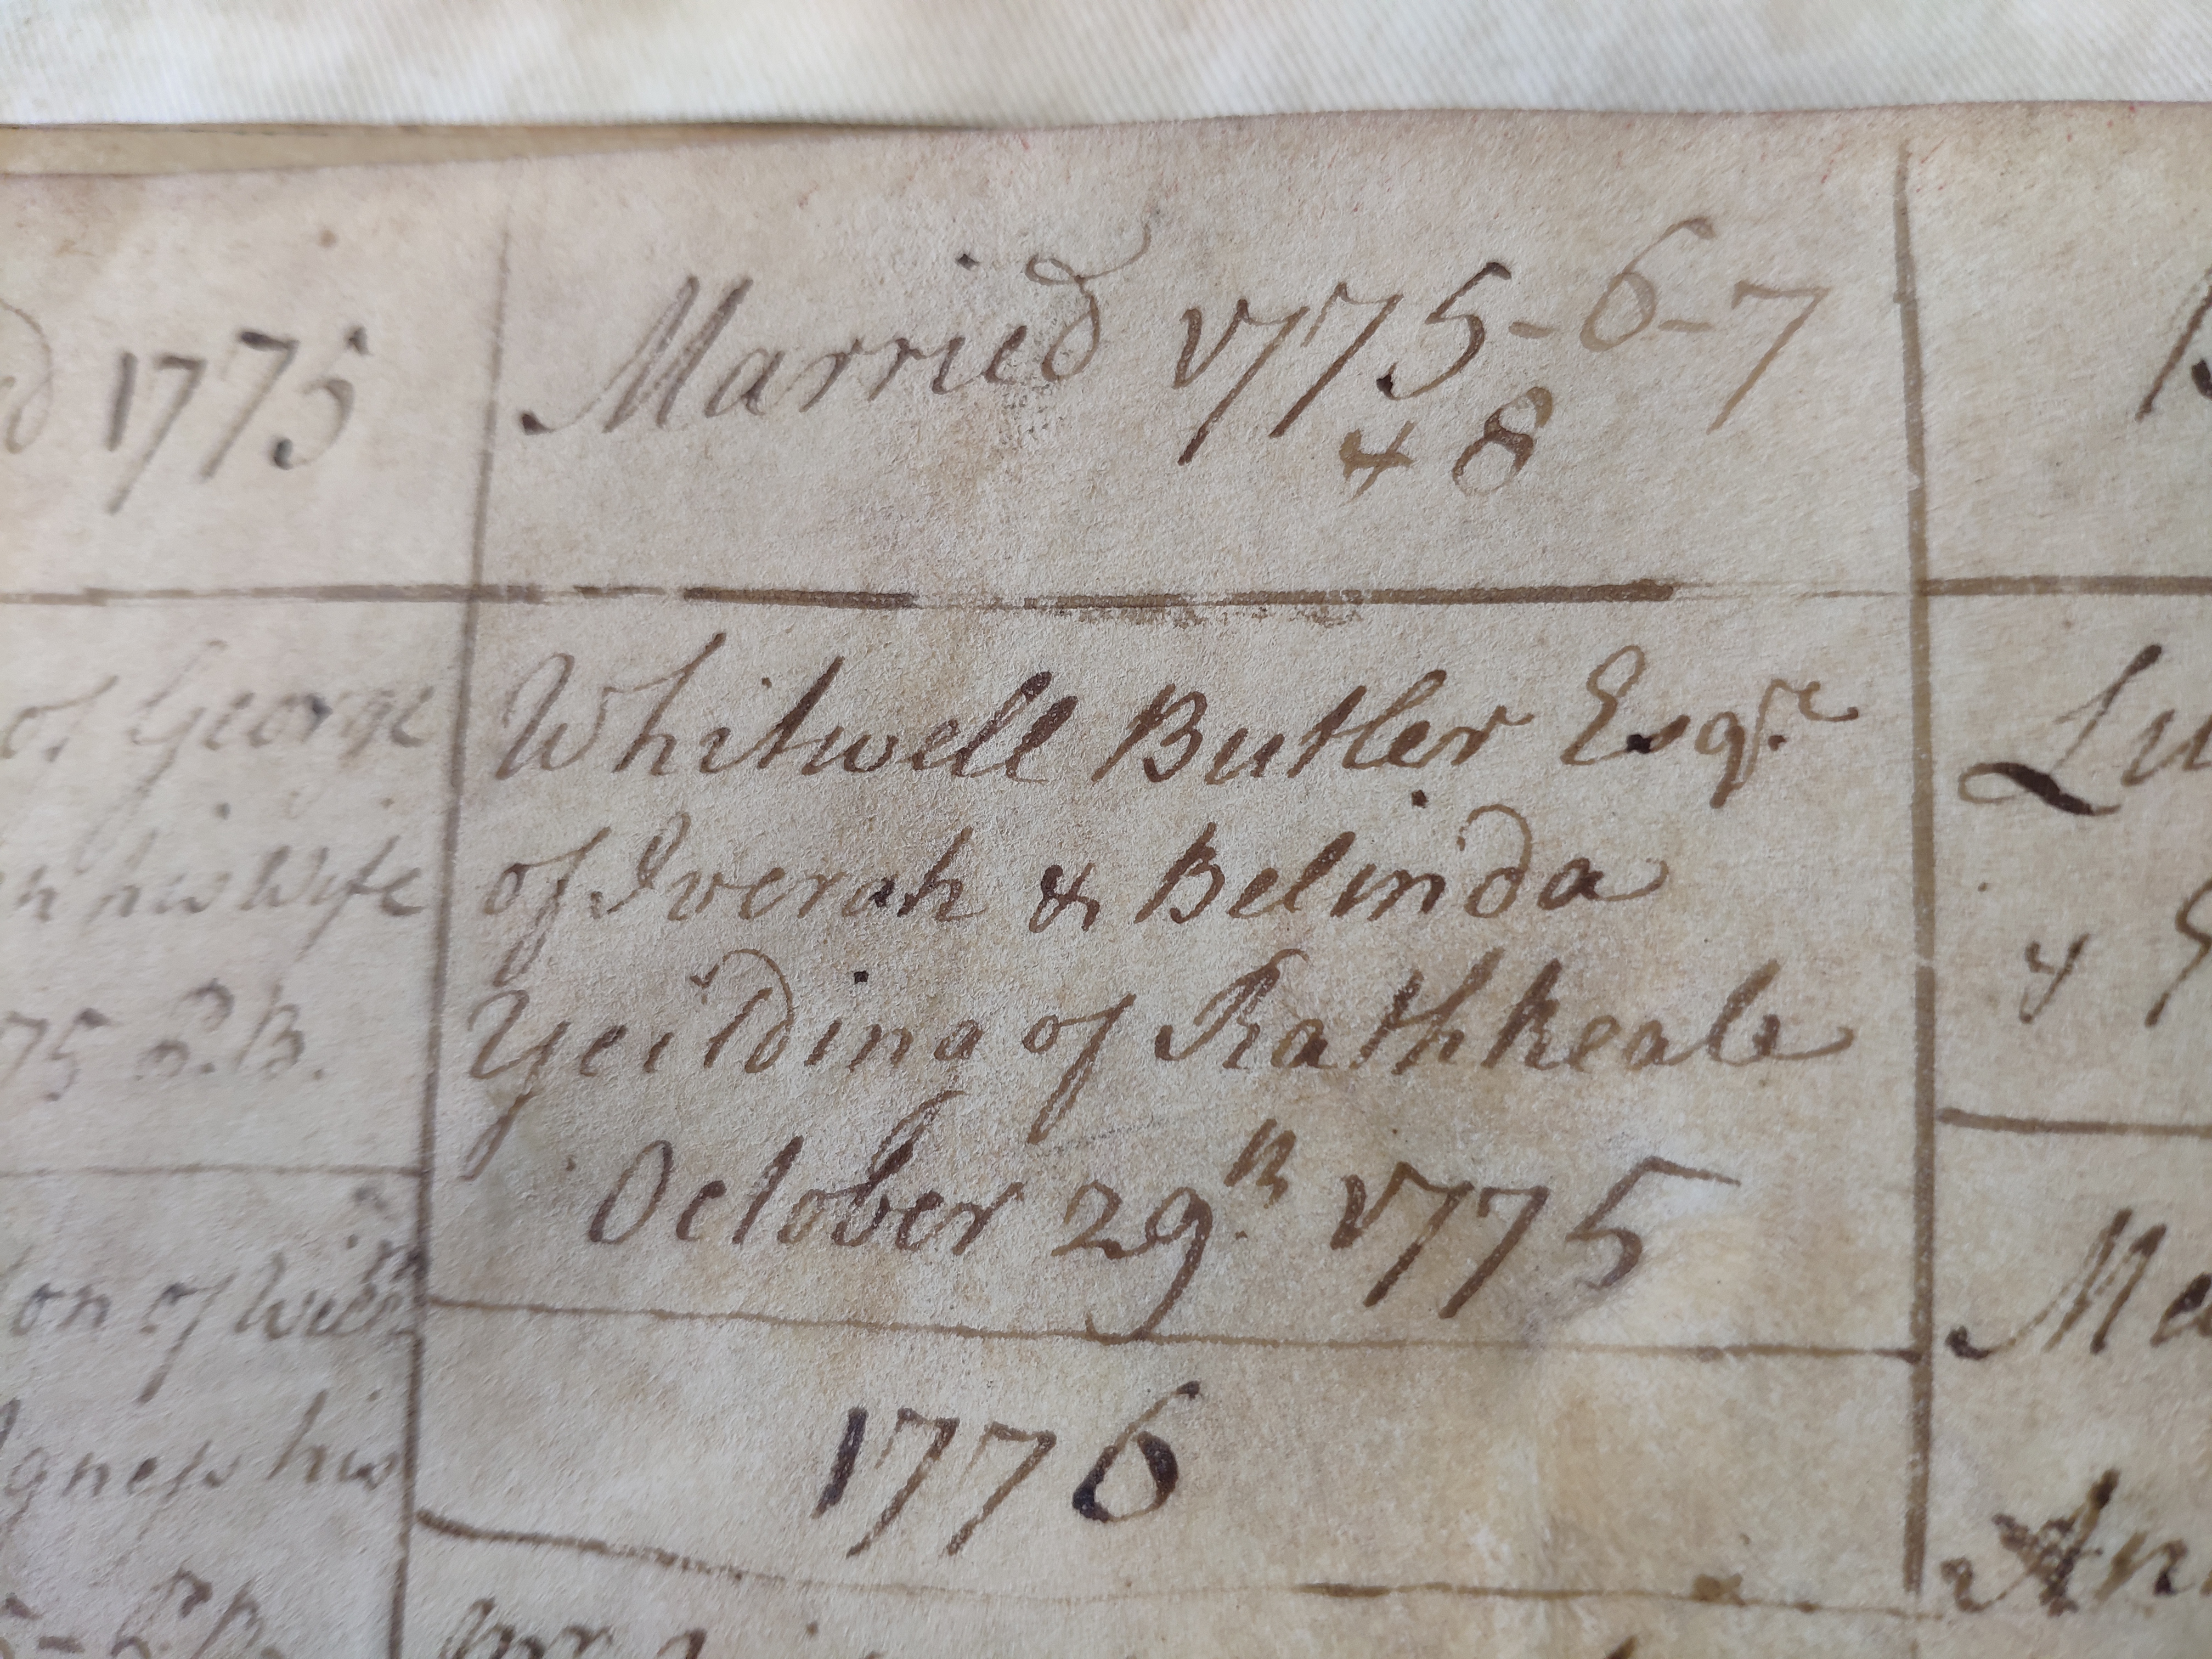 1775
of George
his Wife
75 P.B.
on of Willm
Agness his
Married 1775-6-7
& 8
Whitwell Butler Esqre
of Iverah & Belinda
Yeilding of Rathkeale
October 29th 1775
1776
Lu
&
Ma
An